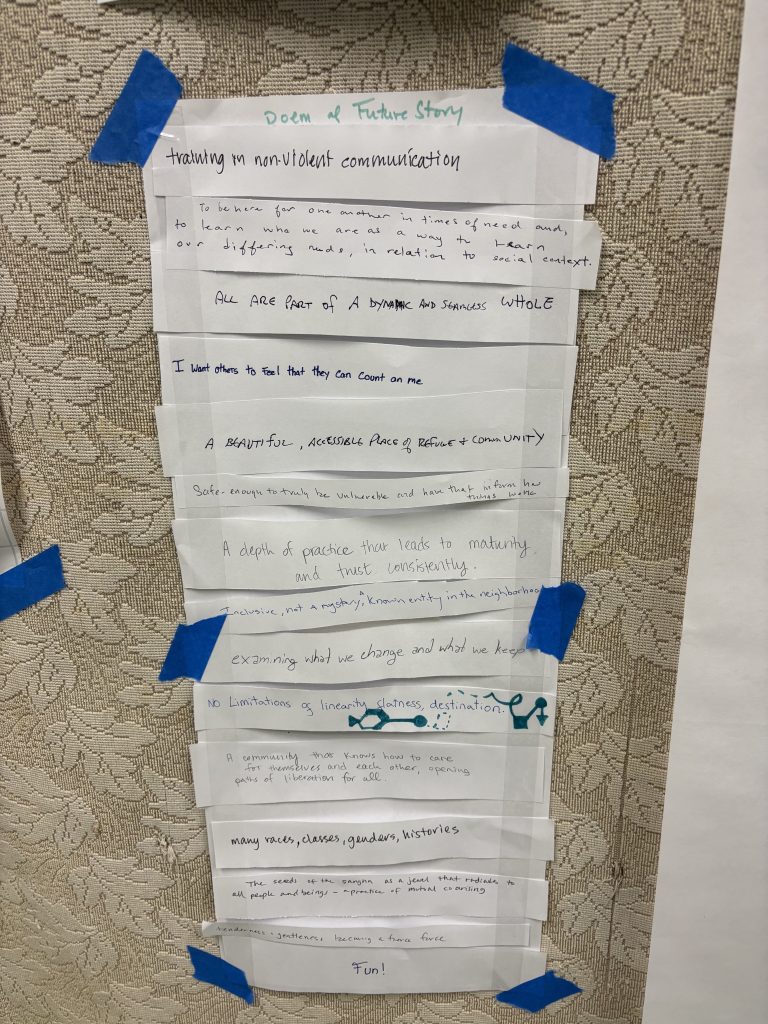 Poem of Future Story
training in non-violent communication
To be here for one another in times of need and,
to learn who we are as a way to learn
our differing needs, in relation to social context.
ALL ARE PART OF A DYNAMIC AND SEAMLESS WHOLE
I want others to feel that they can count on me
A BEAUTIFUL, ACCESSIBLE PLACE of REFUGE + COMMUNITY
Safe-enough to truly be vulnerable and have that inform how
things work
A depth of practice that leads to maturity
and trust consistently.
Inclusive, not a mystery, A known entity in the neighborhood
examining what we change and what we keep
NO Limitations of linearity, flatness, destination.
A community that knows how to care
for themselves and each other, opening
paths of liberation for all.
many races, classes, genders, histories
The seeds of the sangha as a jewel that radiates to
all people and beings - a practice of mutual co arising
tenderness + gentleness, becoming a fierce force
Fun!